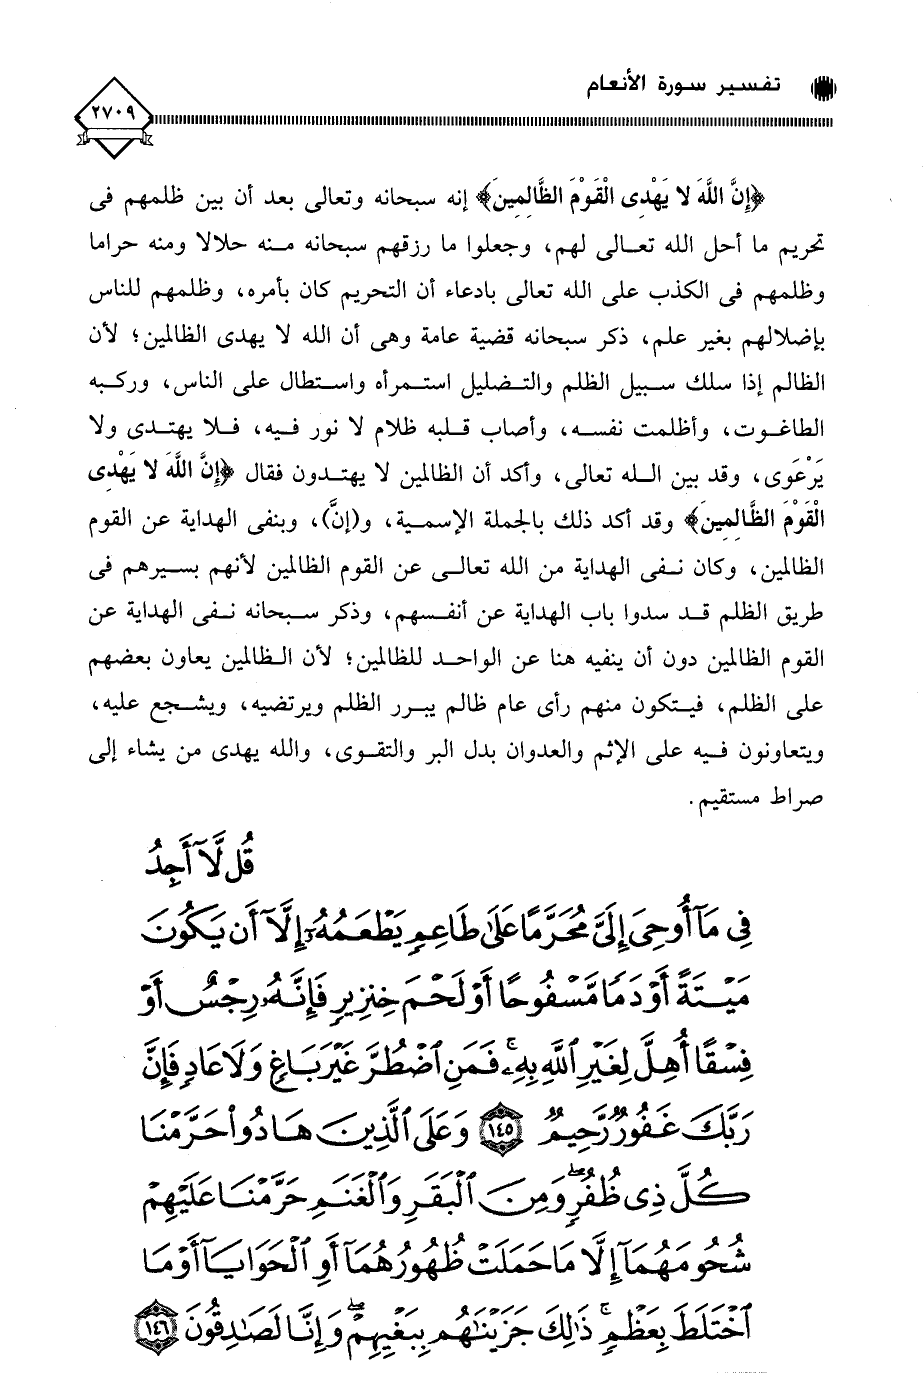 تفسير سورة الأنعام
٢٧٠٩
﴿إِنَّ اللَّهَ لا يَهْدِى الْقَوْمَ الظَّالِمِينَ﴾ إنه سبحانه وتعالى بعد أن بين ظلمهم فى
تحريم ما أحل الله تعالى لهم، وجعلوا ما رزقهم سبحانه منه حلالا ومنه حراما
وظلمهم فى الكذب على الله تعالى بادعاء أن التحريم كان بأمره، وظلمهم للناس
بإضلالهم بغير علم، ذكر سبحانه قضية عامة وهى أن الله لا يهدى الظالمين؛ لأن
الظالم إذا سلك سبيل الظلم والتضليل استمرأه واستطال على الناس، وركبه
الطاغوت، وأظلمت نفسه، وأصاب قلبه ظلام لا نور فيه، فلا يهتدى ولا
يَرْعَوى، وقد بين الله تعالى، وأكد أن الظالمين لا يهتدون فقال ﴿إِنَّ اللَّهَ لا يَهْدِى
الْقَوْمَ الظَّالِمِينَ﴾ وقد أكد ذلك بالجملة الإسمية، و(إنَّ)، وبنفى الهداية عن القوم
الظالمين، وكان نفى الهداية من الله تعالى عن القوم الظالمين لأنهم بسيرهم فى
طريق الظلم قد سدوا باب الهداية عن أنفسهم، وذكر سبحانه نفى الهداية عن
القوم الظالمين دون أن ينفيه هنا عن الواحد للظالمين؛ لأن الظالمين يعاون بعضهم
على الظلم، فيتكون منهم رأى عام ظالم يبرر الظلم ويرتضيه، ويشجع عليه،
ويتعاونون فيه على الإثم والعدوان بدل البر والتقوى، والله يهدى من يشاء إلى
صراط مستقيم.
قُل لَّآ أَجِدُ
فِي مَآ أُوحِيَ إِلَيَّ مُحَرَّمًا عَلَىٰ طَاعِمٍ يَطْعَمُهُۥٓ إِلَّآ أَن يَكُونَ
مَيْتَةً أَوْ دَمًا مَّسْفُوحًا أَوْ لَحْمَ خِنزِيرٍ فَإِنَّهُۥ رِجْسٌ أَوْ
فِسْقًا أُهِلَّ لِغَيْرِ ٱللَّهِ بِهِۦۚ فَمَنِ ٱضْطُرَّ غَيْرَ بَاغٍ وَلَا عَادٍ فَإِنَّ
رَبَّكَ غَفُورٌ رَّحِيمٌ ﴿١٤٥﴾ وَعَلَى ٱلَّذِينَ هَادُوا۟ حَرَّمْنَا
كُلَّ ذِى ظُفُرٍۖ وَمِنَ ٱلْبَقَرِ وَٱلْغَنَمِ حَرَّمْنَا عَلَيْهِمْ
شُحُومَهُمَآ إِلَّا مَا حَمَلَتْ ظُهُورُهُمَآ أَوِ ٱلْحَوَايَآ أَوْ مَا
ٱخْتَلَطَ بِعَظْمٍۚ ذَٰلِكَ جَزَيْنَٰهُم بِبَغْيِهِمْۖ وَإِنَّا لَصَٰدِقُونَ ﴿١٤٦﴾